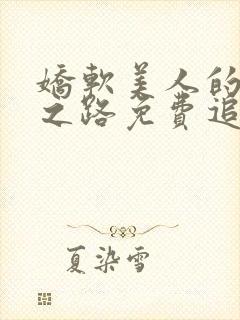 嬌軟美人的
之路免費追
夏染雪